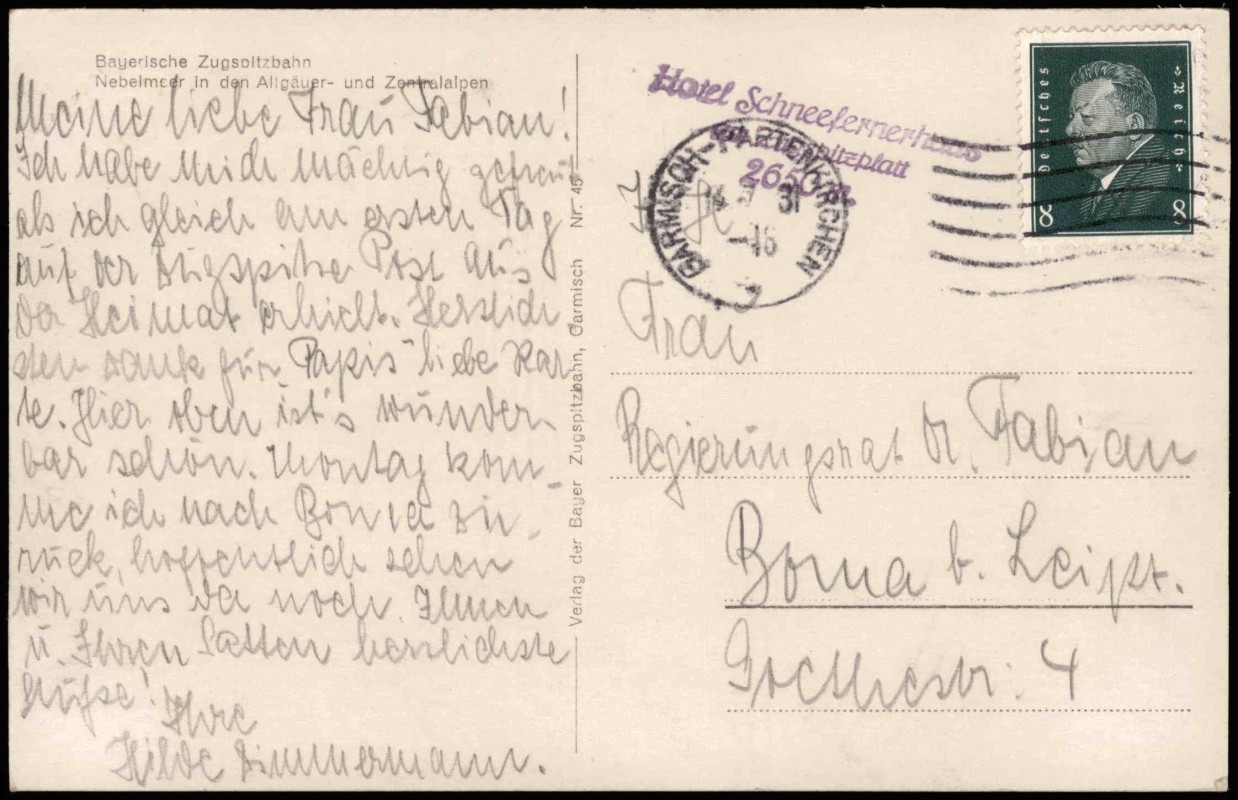 Bayerische Zugspitzbahn
Nebelmeer in den Allgäuer- und Zentralalpen
Meine liebe Frau Fabian!
Ich habe mich mächtig gefreut
als ich gleich am ersten Tag
auf der Zugspitze Post aus
der Heimat erhielt. Herzlich
sten Dank für "Papis" liebe Kar
te. Hier oben ist's wunder-
bar schön. Montag kom-
me ich nach Borna zu-
rück, hoffentlich sehen
wir uns da noch. Ihnen
u. Ihren Gatten herzlichste
Grüße!
Ihre
Hilde Zimmermann.
Verlag der Bayer Zugspitzbahn, Garmisch Nr. 45
Hotel Schneefernerhaus
2650 m.
GARMISCH-PARTENKIRCHEN
31
Deutsches
Reich
8 8
Frau
Regierungsrat Dr. Fabian
Borna b. Leipz.
Goethestr. 4